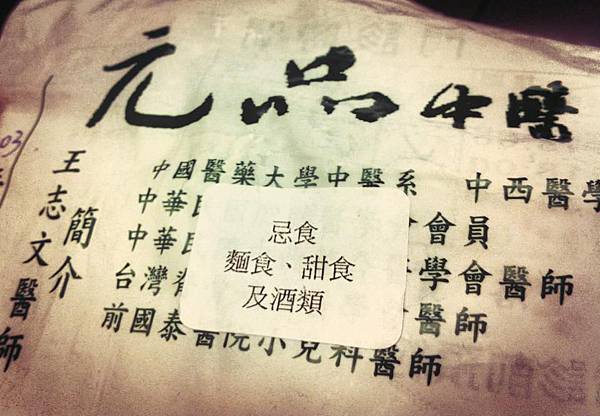 元品中醫
王志文醫師
簡介
中國醫藥大學中醫系 中西醫學
中華民 會會員
中華民
台灣 學會醫師
醫師
前國泰醫院小兒科醫師
忌食
麵食、甜食
及酒類
03